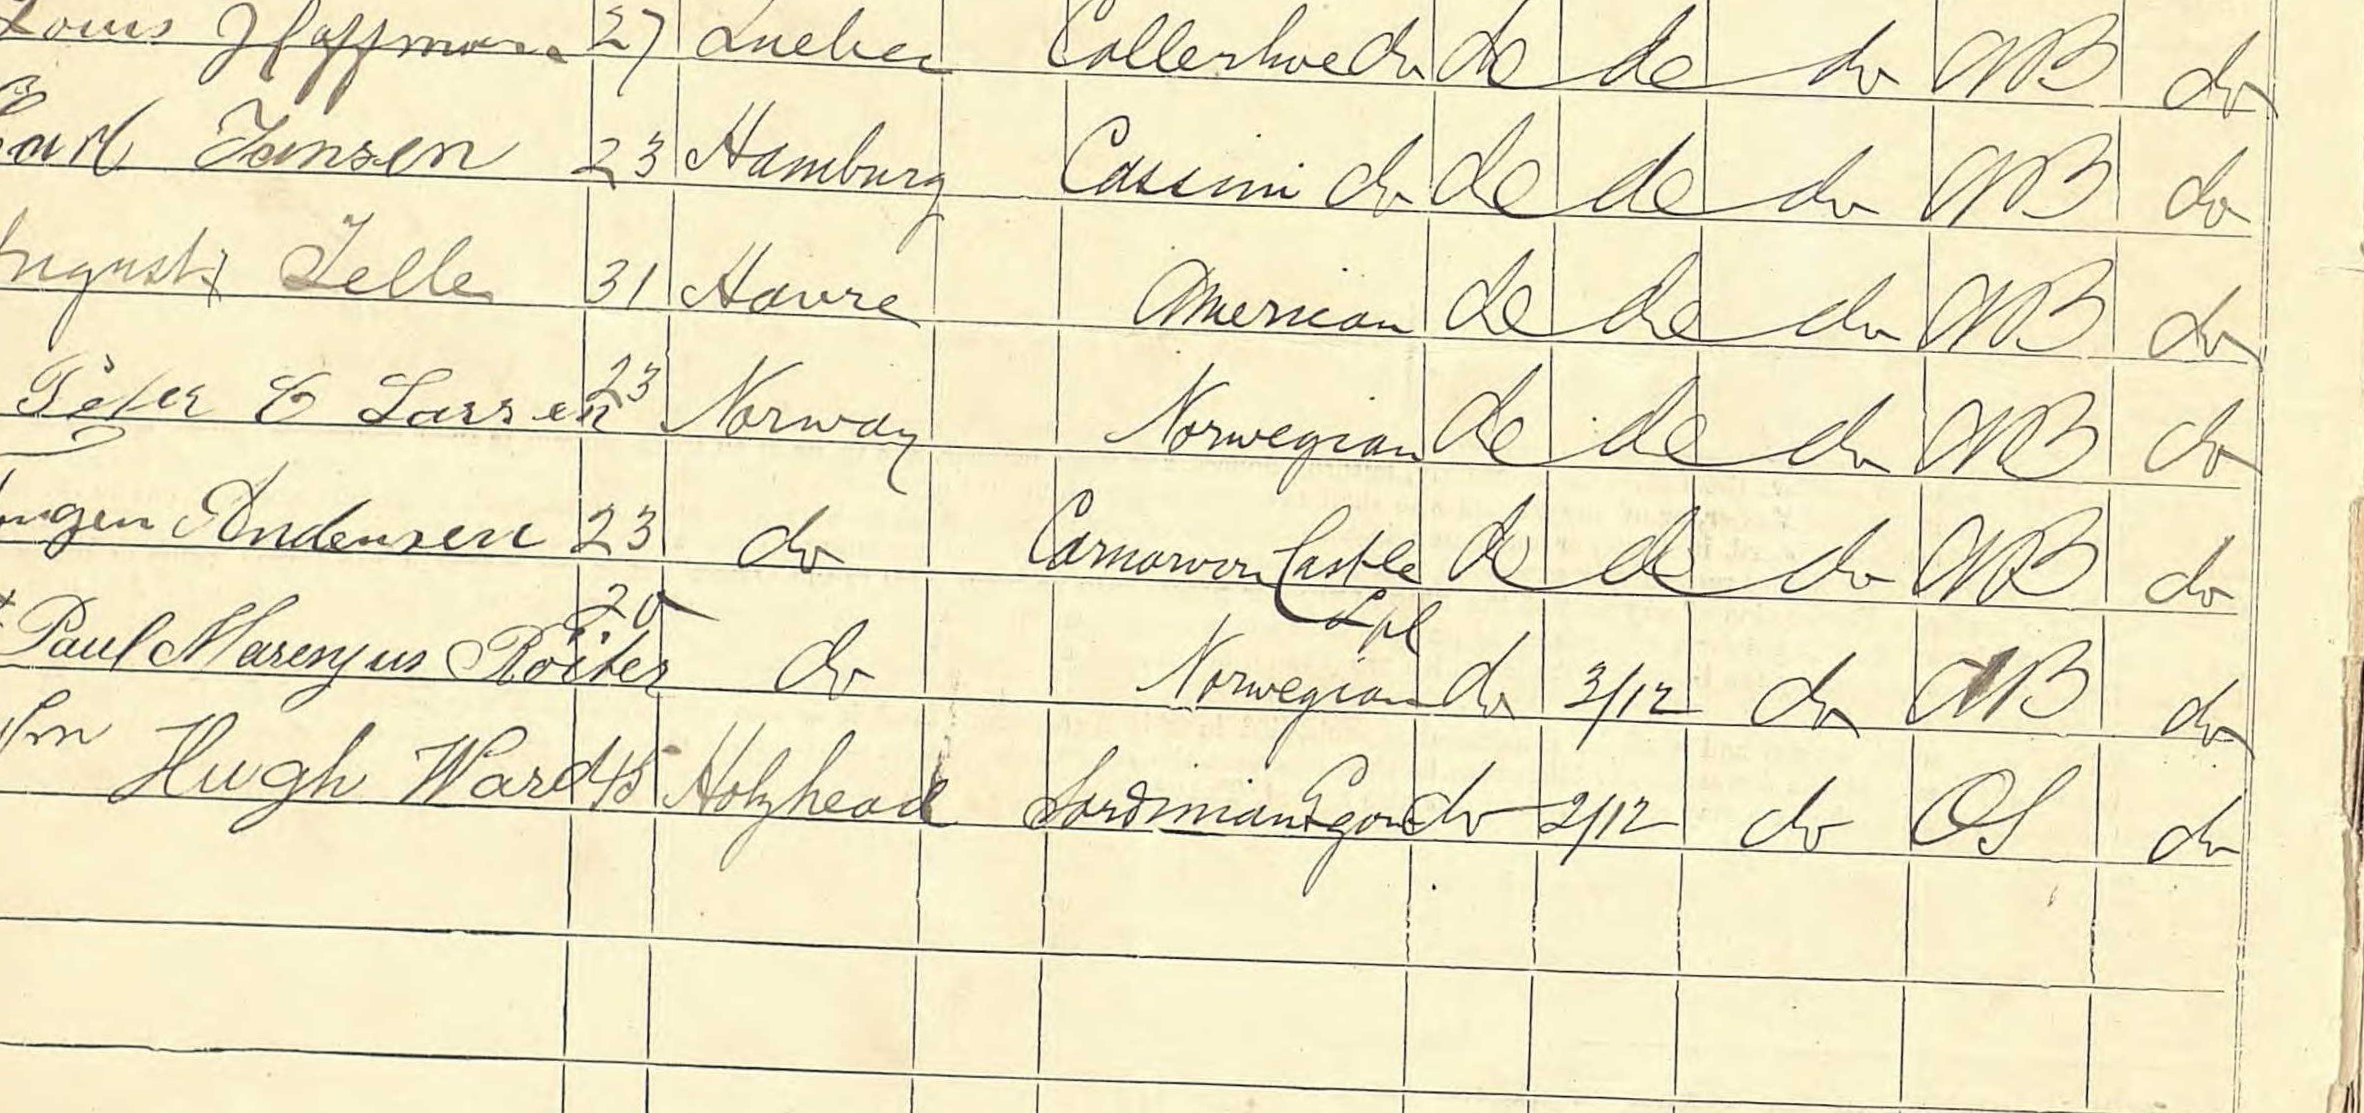 Louis Hoffman 27 Quebec do do do do AB do
Carl Jansen 23 Hamburg Cassini do do do do AB do
August Zelle 31 Havre American do do do AB do
Peter E Larsen 23 Norway Norwegian do do do AB do
Andersen 23 do Carnarvon Castle do do do AB do
Lpl
Paul 20 do Norwegian do 3/12 do AB do
Hugh Ward 45 Holyhead do 2/12 do OS do